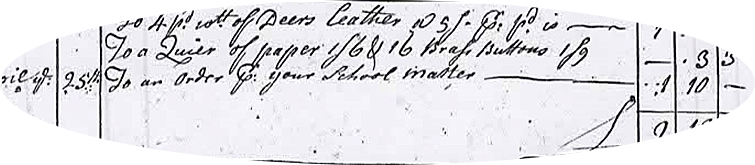 To 4 pd. wtt. of Deers Leather @ 5/- pr. pd is
To a Quier of paper 1/6 & 16 Brass Buttons 1/9 — . 3 3
ril ye. 25th To an Order pr. your School master — . . 1 10 —